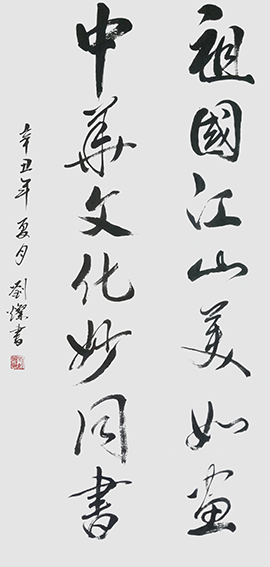 祖國江山美如画
中華文化妙同書
辛丑年夏月劉燦書